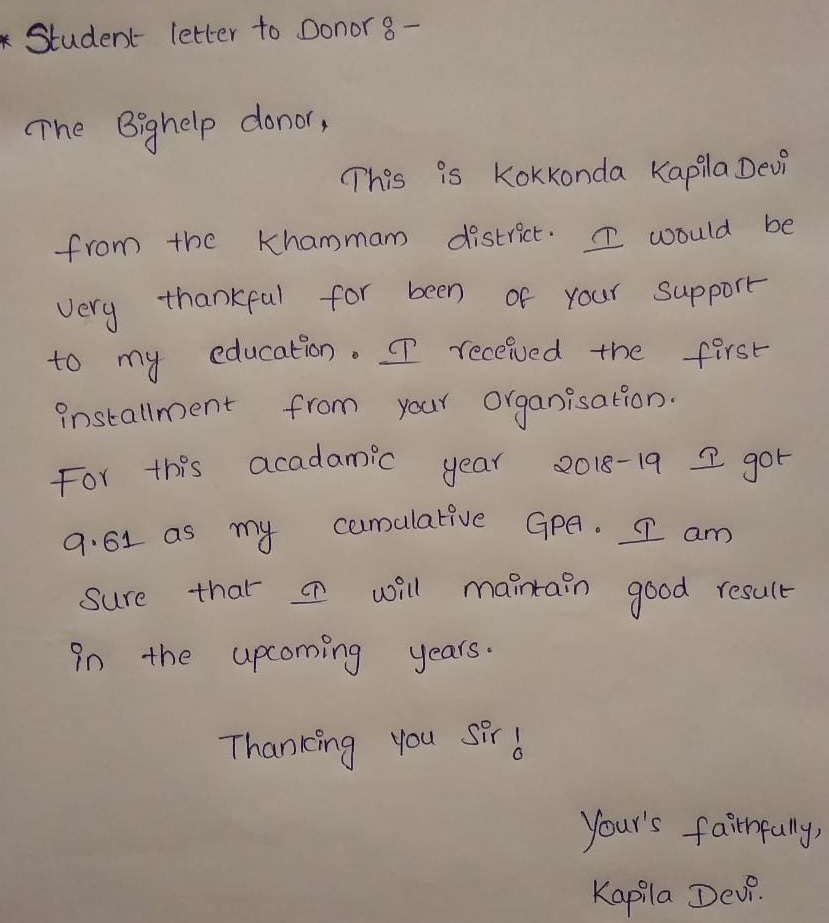 * Student letter to Donor :-
The Bighelp donor,
This is Kokkonda Kapila Devi
from the Khammam district. I would be
very thankful for been of your support
to my education. I received the first
installment from your organisation.
For this acadamic year 2018-19 I got
9.61 as my cumulative GPA. I am
sure that I will maintain good result
in the upcoming years.
Thanking you Sir!
Your's faithfully,
Kapila Devi.